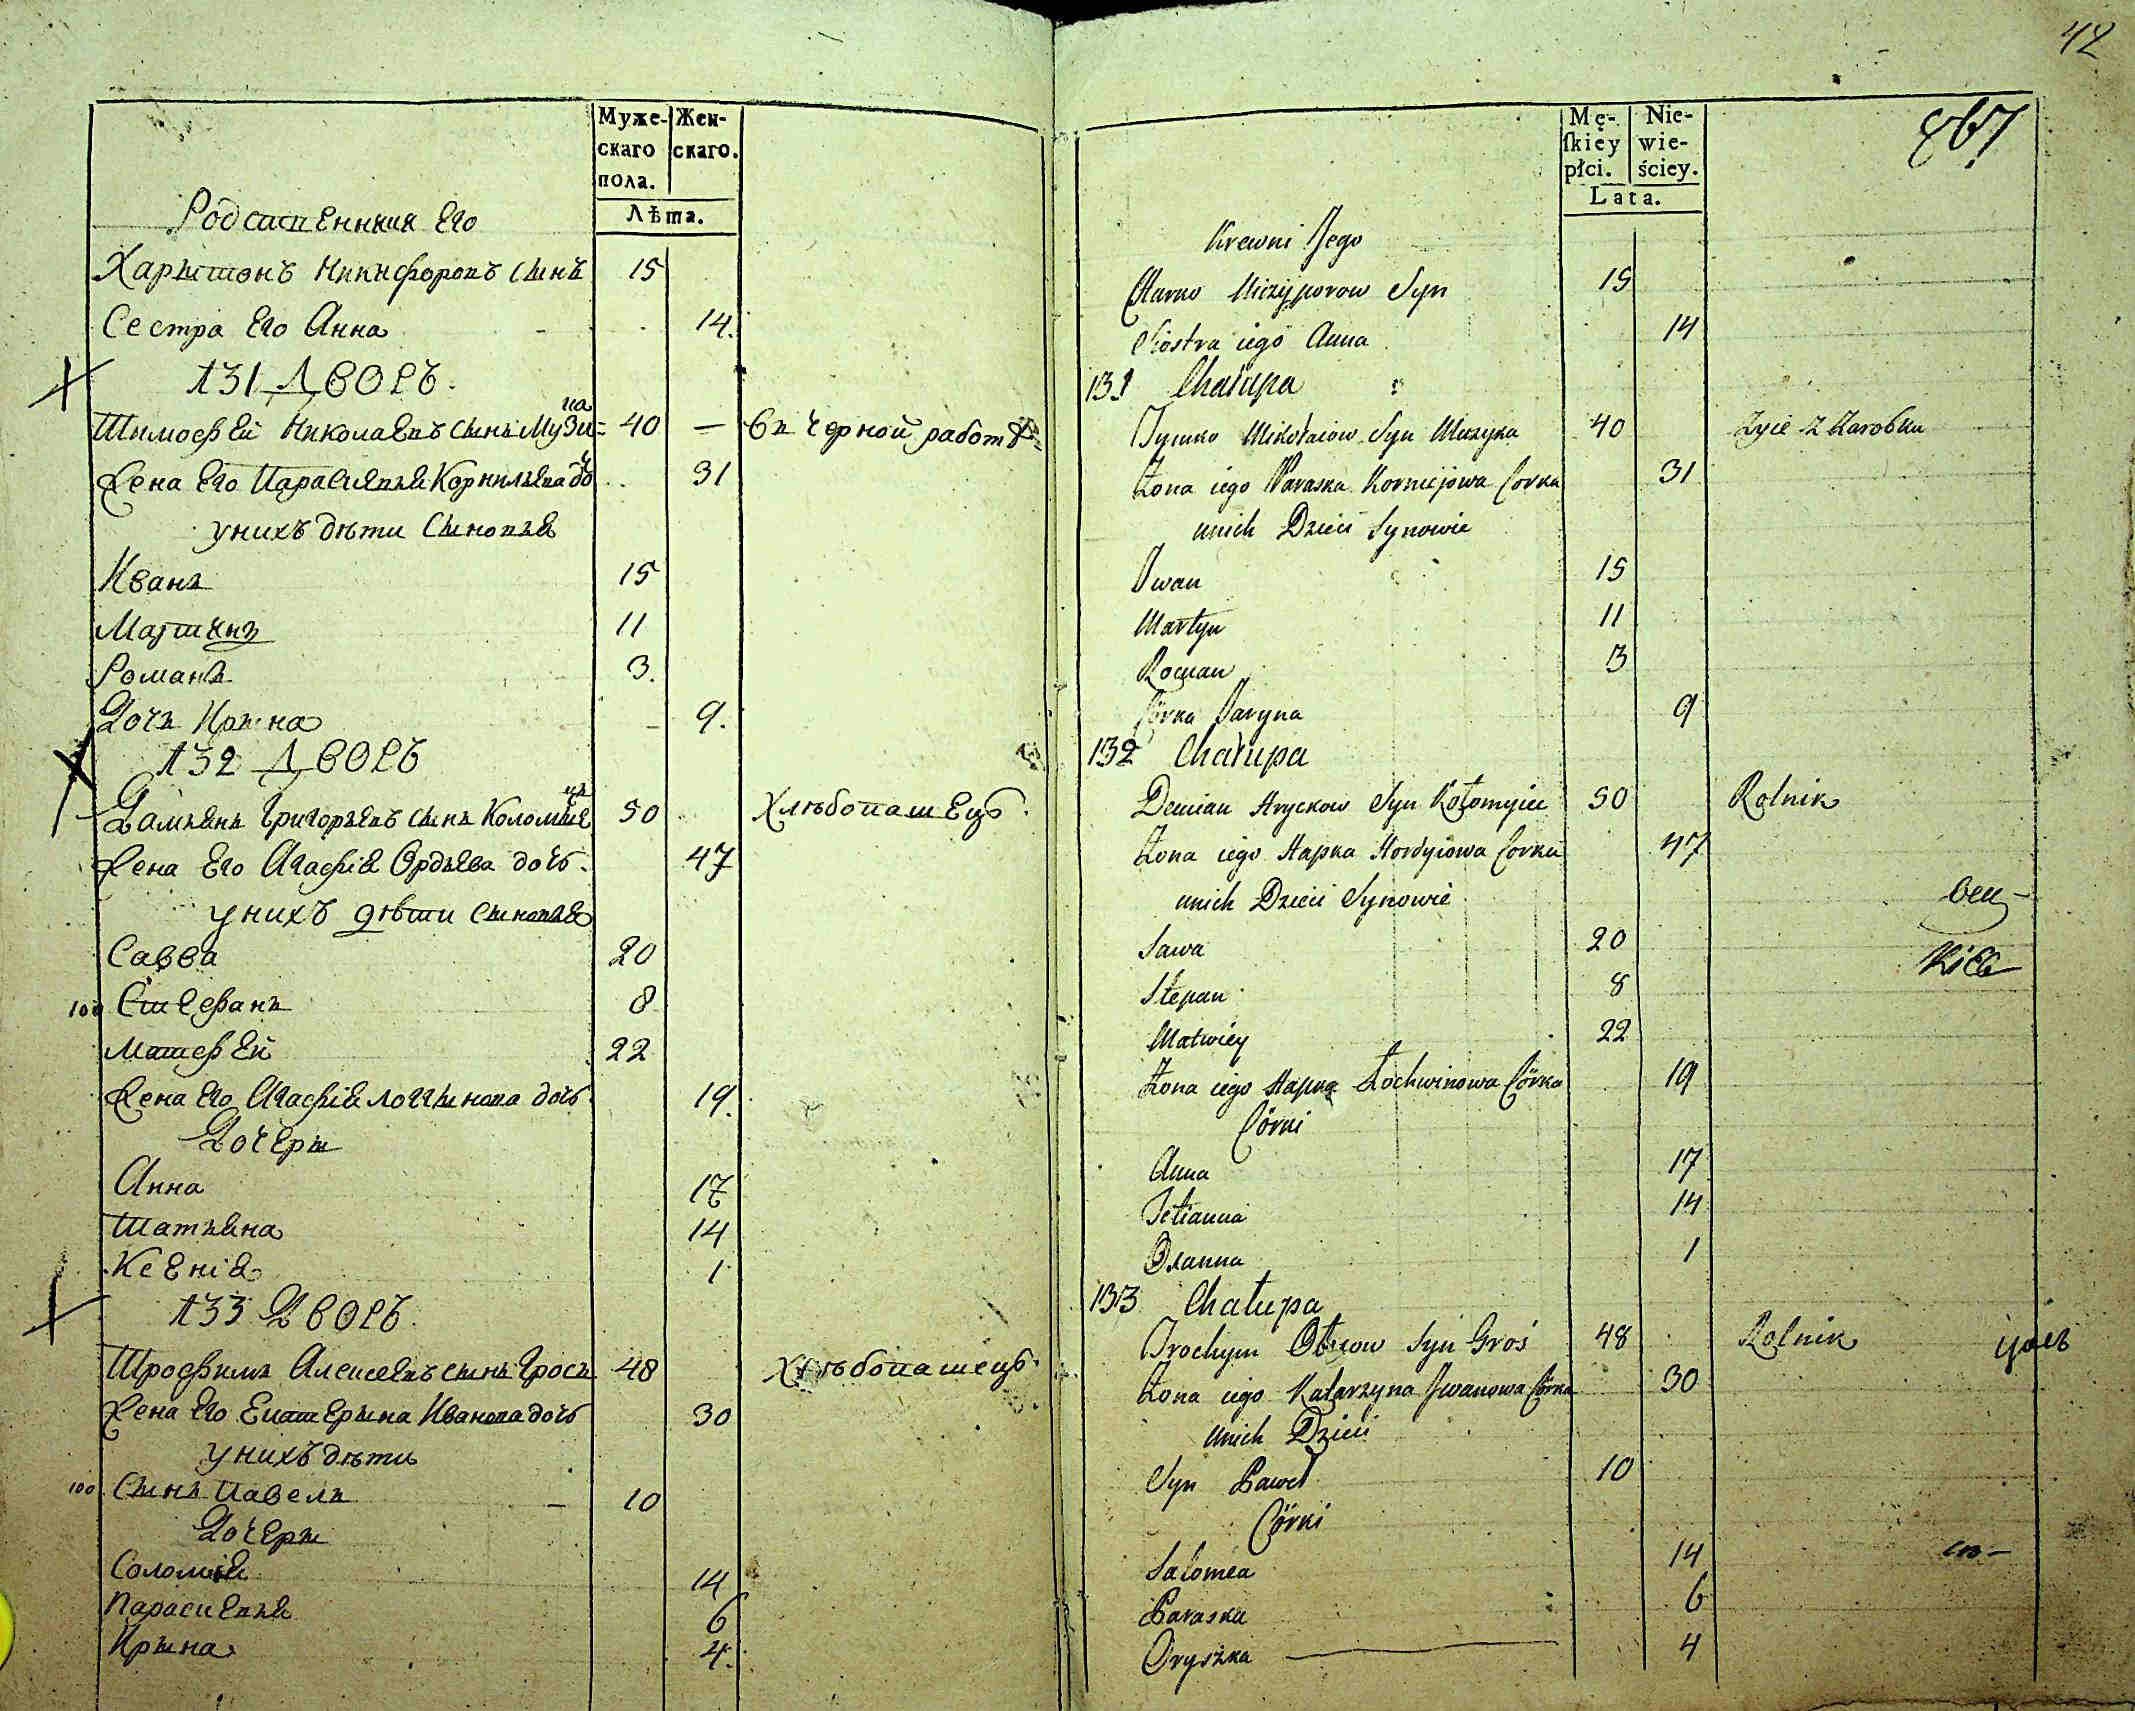 42
867
Муже-
скаго
пола.
Жен-
скаго.
Лѣта.
Родственники Его
Харитонъ Никифоровъ сынъ 15
Сестра Его Анна 14.
131 ДВОРЪ.
Тимофей Николаевъ сынъ Музи=ка 40 — въ черной работѣ
Жена Его Парасиевья Корнильева дочь 31
у нихъ дѣти Сыновья
Иванъ 15
Мартинъ 11
Романъ 3.
Дочь Ирина 9.
132 ДВОРЪ
Дамьянъ Григорьевъ сынъ Коломиецъ 50 Хлѣбопашецъ.
Жена Его Агафия Ордѣева дочь. 47
у нихъ дѣти сыновья
Савва 20
100 Стефанъ 8
Матфей 22
Жена Его Агафия Логгинова дочь. 19.
Дочери
Анна 17
Татьяна 14
Ксения 1
133 ДВОРЪ.
Трофимъ Алексеевъ сынъ Грось 48 Хлѣбопашецъ.
Жена Его Екатерина Иванова дочь 30
у нихъ дѣти
100 Сынъ Павелъ 10
Дочери
Соломия 14
Парасиевья 6
Ирина 4.
Mę-
ſkiey
płci.
Nie-
wie-
ściey.
Lata.
Krewni Jego
Charko Niczyporow Syn 15
Siostra iego Anna 14
131 Chałupa
Tymko Mikołaiow Syn Muzyka 40 Zyie z Zarobku
Zona iego Paraska Korniejowa Corka 31
unich Dzieci Synowie
Iwan 15
Martyn 11
Roman 3
Córka Jaryna 9
132 Chałupa
Demian Hryckow Syn Kołomyiec 50 Rolnik
Zona iego Hapka Hordyiowa Corka 47
unich Dzieci Synowie
Sawa 20
Stepan 8
Matwiey 22
Zona iego Hapka Łochwinowa Córka 19
Córki
Anna 17
Tetianna 14
Oxanna 1
133 Chałupa
Trochym Olexow Syn Groś 48 Rolnik
Zona iego Katarzyna Iwanowa Córka 30
unich Dzieci
Syn Paweł 10
Córki
Salomea 14
Paraska 6
Oryszka 4